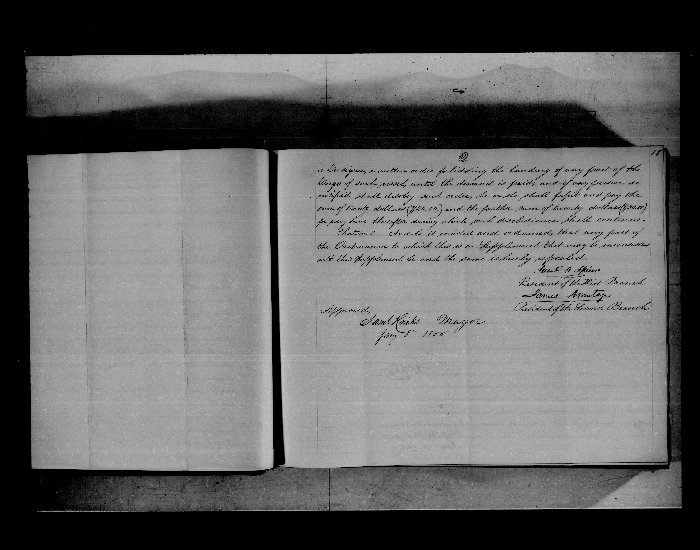 2
15
or Consignee, a written order forbidding the landing of any part of the
Cargo of such vessel until the demand is paid; and if any person so
notified shall disobey such order, he or she shall forfeit and pay the
sum of twenty dollars ($20.00) and the further sum of twenty dollars ($20.00)
for any time thereafter during which such disobedience shall continue.
Section 2 And be it enacted and ordained, that any part of
the Ordinance to which this is a Supplement, that may be inconsistent
with this Supplement, be and the same is hereby repealed.
President of the First Branch
James Armitage
President of the Second Branch
Approved,
Saml Hinks Mayor
Jany